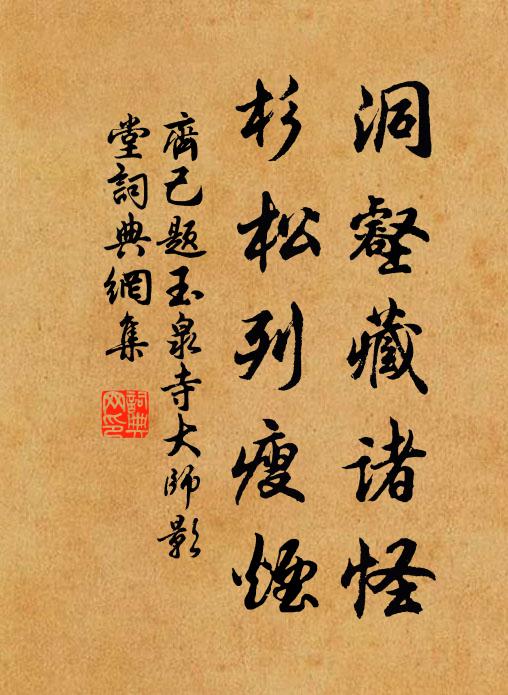 洞壑藏諸怪
杉松列瘦煙
齊己题玉泉寺大師影
堂詞典網集
詞典
网印